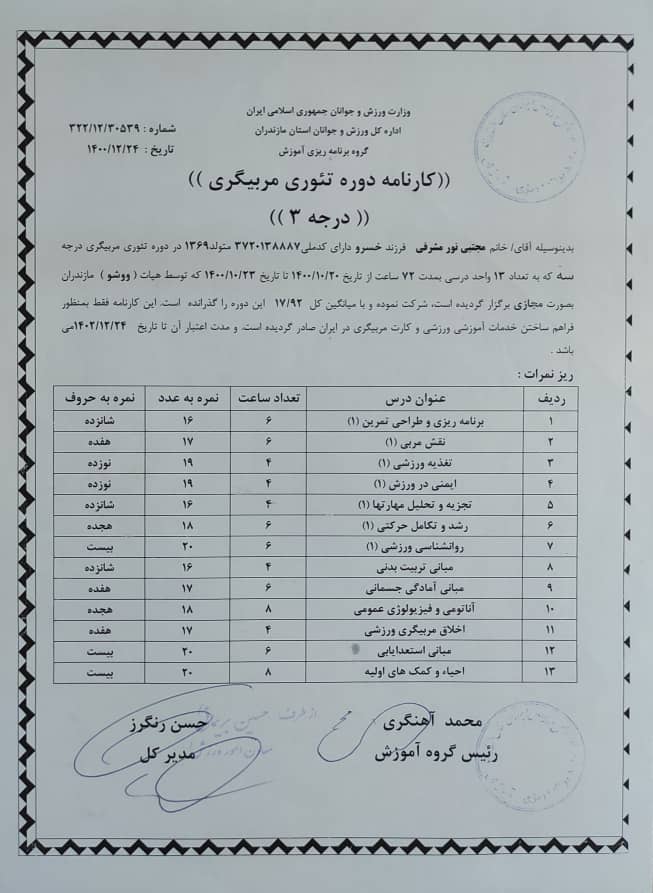 وزارت ورزش و جوانان جمهوری اسلامی ایران
اداره کل ورزش و جوانان استان مازندران
گروه برنامه ریزی آموزش
شماره : ۳۲۲/۱۲/۳۰۵۳۹
تاریخ : ۱۴۰۰/۱۲/۲۴
((کارنامه دوره تئوری مربیگری ))
(( درجه ۳ ))
بدینوسیله آقای/ خانم مجتبی نور مشرفی فرزند خسرو دارای کدملی۳۷۲۰۱۳۸۸۸۷ متولد۱۳۶۹ در دوره تئوری مربیگری درجه
سه که به تعداد ۱۳ واحد درسی بمدت ۷۲ ساعت از تاریخ ۱۴۰۰/۱۰/۲۰ تا تاریخ ۱۴۰۰/۱۰/۲۳ که توسط هیات ( ووشو ) مازندران
بصورت مجازی برگزار گردیده است، شرکت نموده و با میانگین کل ۱۷/۹۲ این دوره را گذرانده است. این کارنامه فقط بمنظور
فراهم ساختن خدمات آموزشی ورزشی و کارت مربیگری در ایران صادر گردیده است. و مدت اعتبار آن تا تاریخ ۱۴۰۲/۱۲/۲۴می
باشد .
ریز نمرات :
ردیف عنوان درس تعداد ساعت نمره به عدد نمره به حروف
۱ برنامه ریزی و طراحی تمرین (۱) ۶ ۱۶ شانزده
۲ نقش مربی (۱) ۶ ۱۷ هفده
۳ تغذیه ورزشی (۱) ۴ ۱۹ نوزده
۴ ایمنی در ورزش (۱) ۴ ۱۹ نوزده
۵ تجزیه و تحلیل مهارتها (۱) ۴ ۱۶ شانزده
۶ رشد و تکامل حرکتی (۱) ۶ ۱۸ هجده
۷ روانشناسی ورزشی (۱) ۶ ۲۰ بیست
۸ مبانی تربیت بدنی ۴ ۱۶ شانزده
۹ مبانی آمادگی جسمانی ۶ ۱۷ هفده
۱۰ آناتومی و فیزیولوژی عمومی ۸ ۱۸ هجده
۱۱ اخلاق مربیگری ورزشی ۴ ۱۷ هفده
۱۲ مبانی استعدایابی ۶ ۲۰ بیست
۱۳ احیاء و کمک های اولیه ۸ ۲۰ بیست
محمد آهنگری
رئیس گروه آموزش
از طرف حسین
حسن رنگرز
مدیر کل